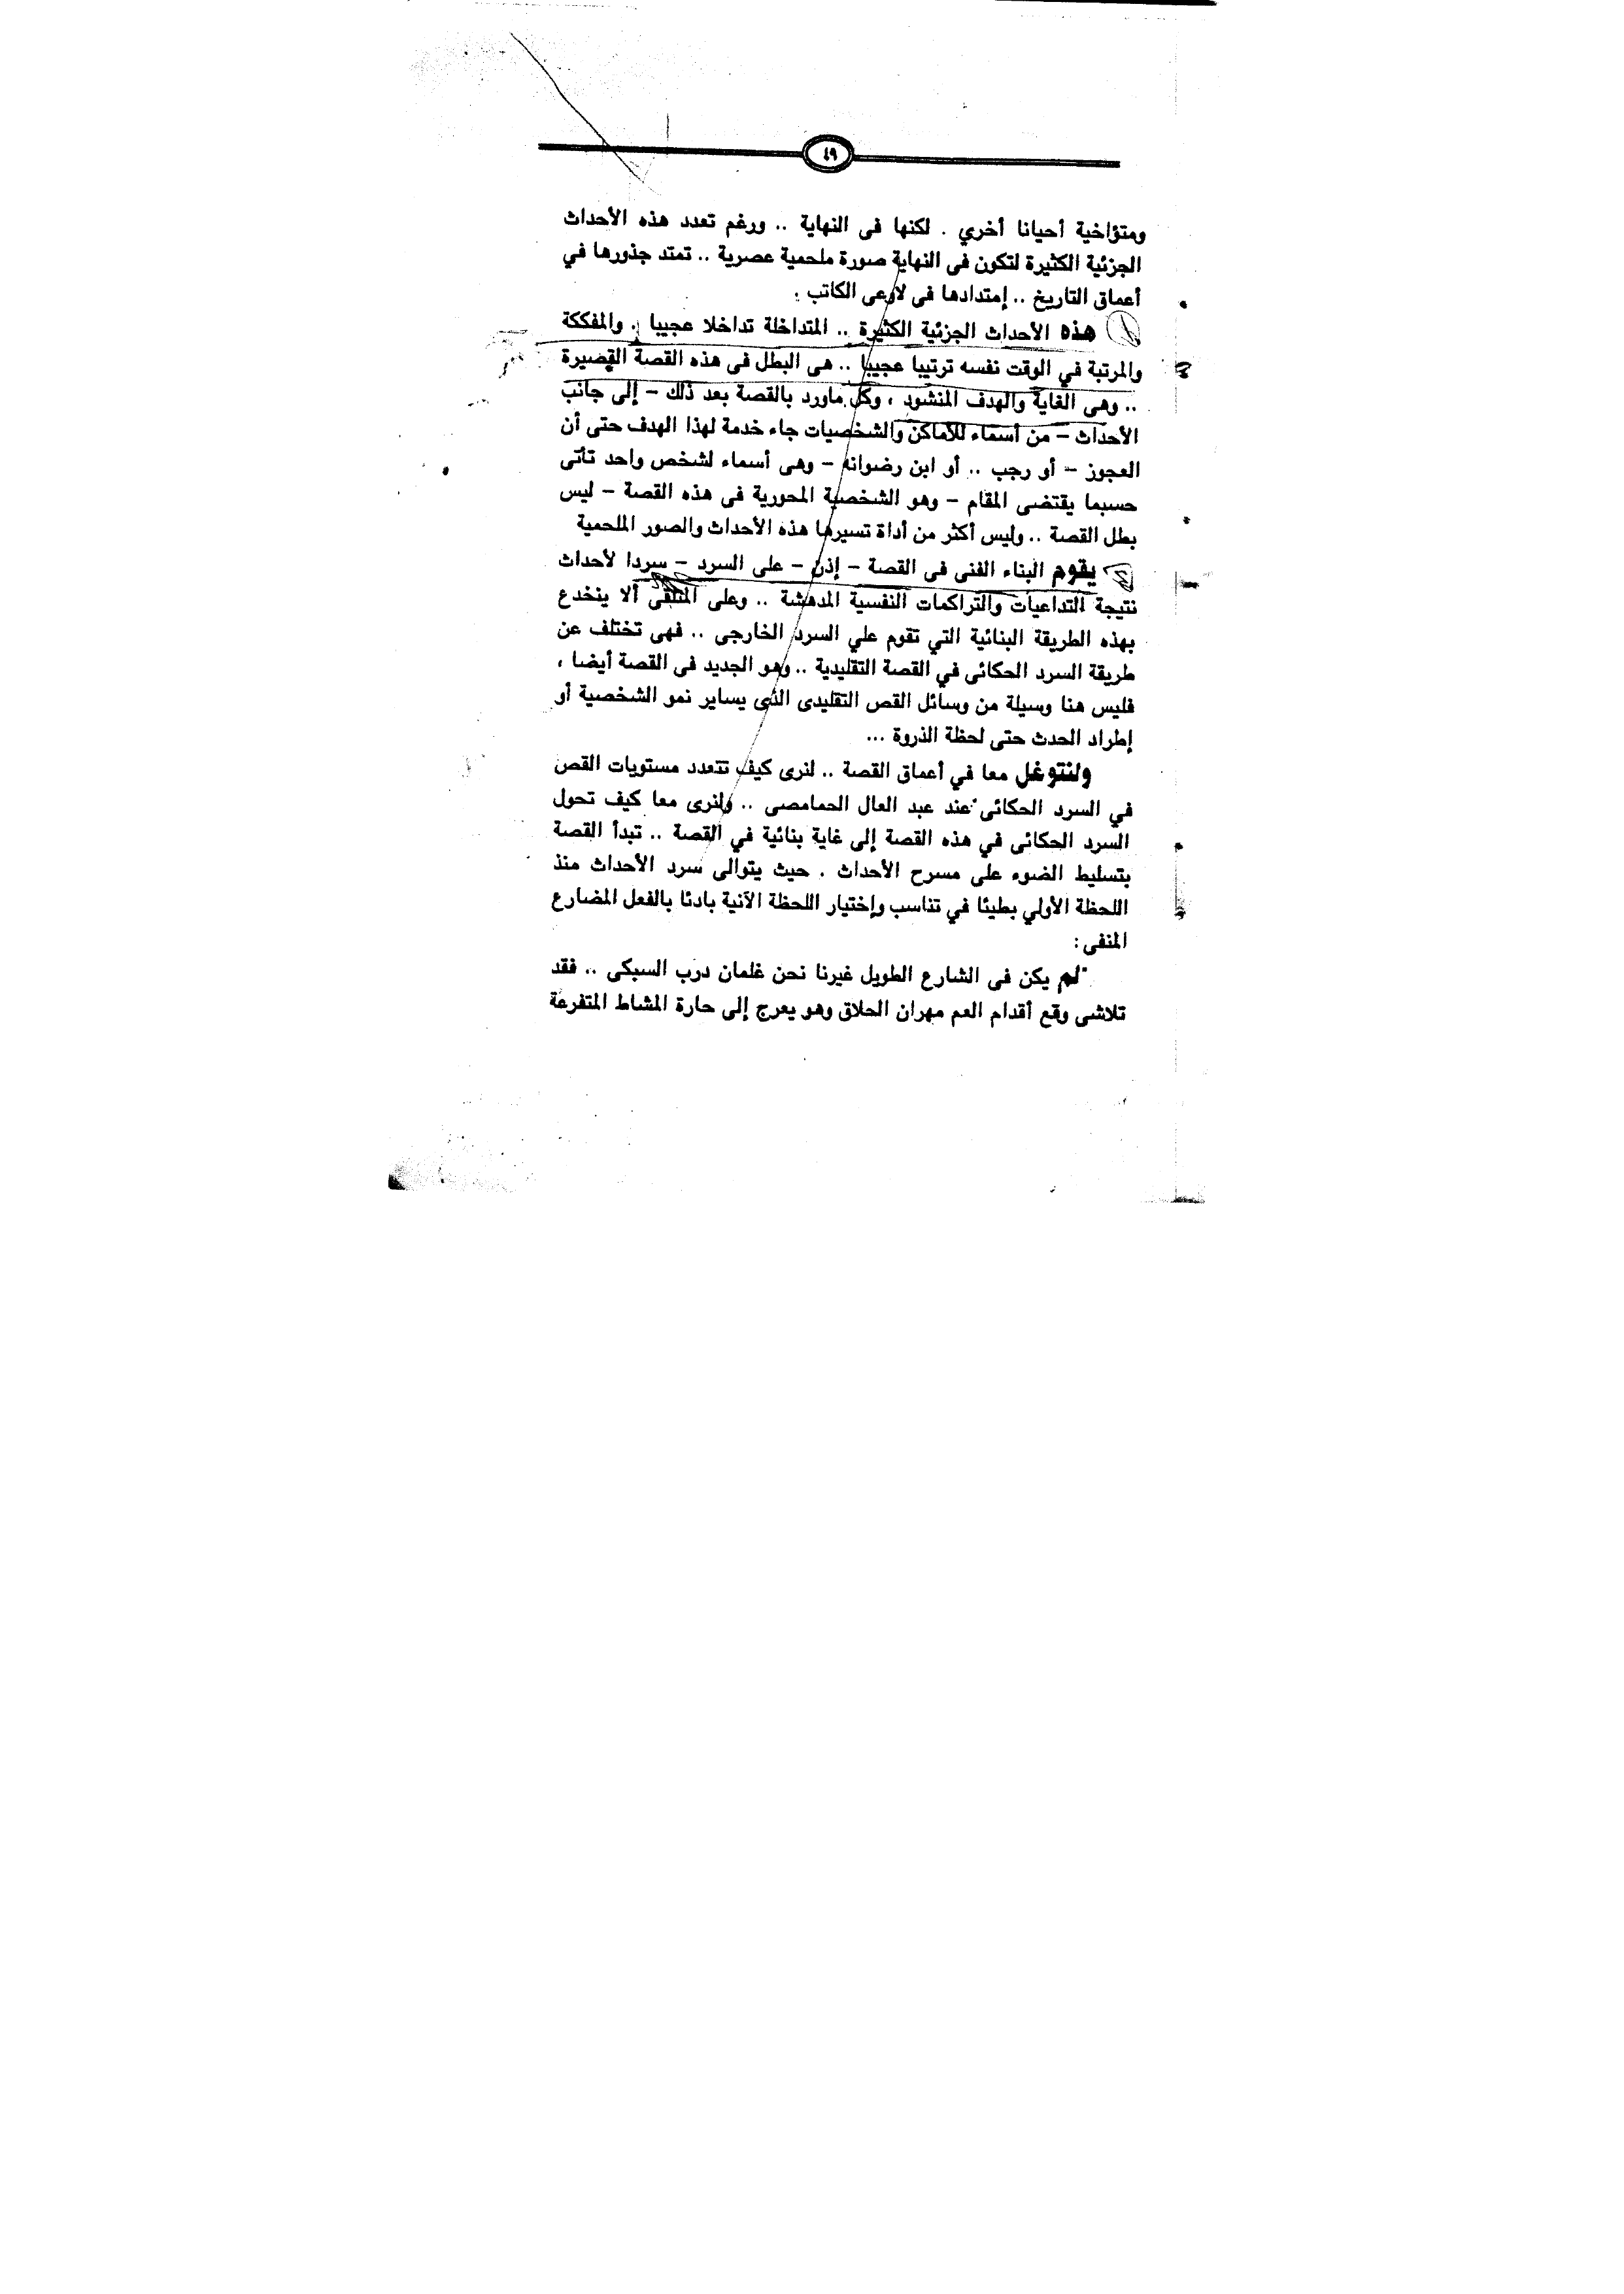 ٤٩
ومتؤاخية أحيانا أخري . لكنها فى النهاية .. ورغم تعدد هذه الأحداث
الجزئية الكثيرة لتكون فى النهاية صورة ملحمية عصرية .. تمتد جذورها في
أعماق التاريخ .. إمتدادها فى لاوعى الكاتب .
هذه الأحداث الجزئية الكثيرة .. المتداخلة تداخلا عجيبا . والمفككة
والمرتبة في الوقت نفسه ترتيبا عجيبا .. هى البطل فى هذه القصة القصيرة
.. وهى الغاية والهدف المنشود ، وكل ماورد بالقصة بعد ذلك – إلى جانب
الأحداث – من أسماء للأماكن والشخصيات جاء خدمة لهذا الهدف حتى أن
العجوز – أو رجب .. أو ابن رضوانه – وهى أسماء لشخص واحد تأتى
حسبما يقتضى المقام – وهو الشخصية المحورية فى هذه القصة – ليس
بطل القصة .. وليس أكثر من أداة تسيرها هذه الأحداث والصور الملحمية
يقوم البناء الفنى فى القصة – إذن – على السرد – سردا لأحداث
نتيجة التداعيات والتراكمات النفسية المدهشة .. وعلى المتلقى ألا ينخدع
بهذه الطريقة البنائية التي تقوم علي السرد الخارجى .. فهى تختلف عن
طريقة السرد الحكائى في القصة التقليدية .. وهو الجديد فى القصة أيضا ،
فليس هنا وسيلة من وسائل القص التقليدى الذى يساير نمو الشخصية أو
إطراد الحدث حتى لحظة الذروة ...
ولنتوغل معا في أعماق القصة .. لنرى كيف تتعدد مستويات القص
في السرد الحكائى عند عبد العال الحمامصى .. ولنرى معا كيف تحول
السرد الحكائى في هذه القصة إلى غاية بنائية في القصة .. تبدأ القصة
بتسليط الضوء على مسرح الأحداث . حيث يتوالى سرد الأحداث منذ
اللحظة الأولي بطيئا في تناسب وإختيار اللحظة الآنية بادئا بالفعل المضارع
المنفى :
"لم يكن فى الشارع الطويل غيرنا نحن غلمان درب السبكى .. فقد
تلاشى وقع أقدام العم مهران الحلاق وهو يعرج إلى حارة المشاط المتفرعة